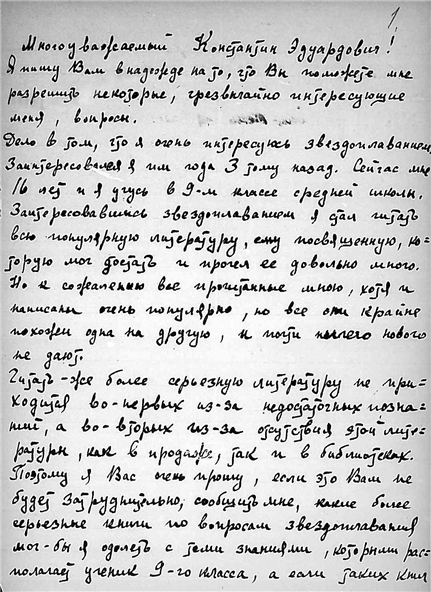 1
Многоуважаемый Константин Эдуардович!
Я пишу Вам в надежде на то, что Вы поможете мне
разрешить некоторые, чрезвычайно интересующие
меня, вопросы.
Дело в том, что я очень интересуюсь звездоплаванием.
Заинтересовался я им года 3 тому назад. Сейчас мне
16 лет и я учусь в 9-м классе средней школы.
Заинтересовавшись звездоплаванием я стал читать
всю популярную литературу, ему посвященную, ко-
торую мог достать и прочел ее довольно много.
Но к сожалению все прочитанные мною, хотя и
написаны очень популярно, но все они крайне
похожи одна на другую, и почти ничего нового
не дают.
Читать-же более серьезную литературу не при=
ходится во-первых из-за недостаточных позна=
ний, а во-вторых из-за отсутствия этой лите=
ратуры, как в продаже, так и в библиотеках.
Поэтому я Вас очень прошу, если это Вам не
будет затруднительно, сообщить мне, какие более
серьезные книги по вопросам звездоплавания
мог-бы я одолеть с теми знаниями, которыми рас=
полагает ученик 9-го класса, а если таких книг